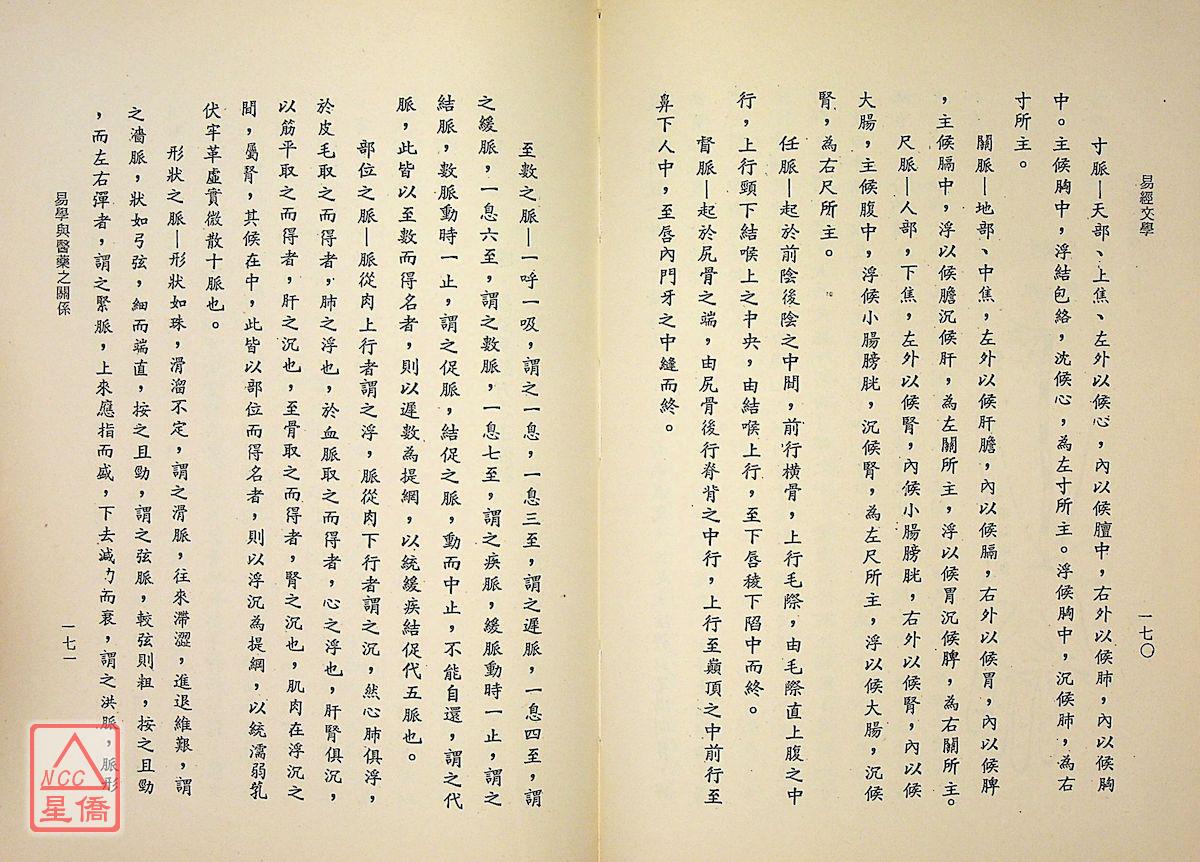 易經文學
一七〇
寸脈—天部、上焦、左外以候心，內以候膻中，右外以候肺，內以候胸
中。主候胸中，浮結包絡，沈候心，為左寸所主。浮候胸中，沉候肺，為右
寸所主。
關脈—地部、中焦，左外以候肝膽，內以候膈，右外以候胃，內以候脾
，主候膈中，浮以候膽沉候肝，為左關所主，浮以候胃沉候脾，為右關所主。
尺脈—人部，下焦，左外以候腎，內候小腸膀胱，右外以候腎，內以候
大腸，主候腹中，浮候小腸膀胱，沉候腎，為左尺所主，浮以候大腸，沉候
腎，為右尺所主。
任脈—起於前陰後陰之中間，前行橫骨，上行毛際，由毛際直上腹之中
行，上行頸下結喉上之中央，由結喉上行，至下唇稜下陷中而終。
督脈—起於尻骨之端，由尻骨後行脊背之中行，上行至巔頂之中前行至
鼻下人中，至唇內門牙之中縫而終。
至數之脈—一呼一吸，謂之一息，一息三至，謂之遲脈，一息四至，謂
之緩脈，一息六至，謂之數脈，一息七至，謂之疾脈，緩脈動時一止，謂之
結脈，數脈動時一止，謂之促脈，結促之脈，動而中止，不能自還，謂之代
脈，此皆以至數而得名者，則以遲數為提綱，以統緩疾結促代五脈也。
部位之脈—脈從肉上行者謂之浮，脈從肉下行者謂之沉，然心肺俱浮，
於皮毛取之而得者，肺之浮也，於血脈取之而得者，心之浮也，肝腎俱沉，
以筋平取之而得者，肝之沉也，至骨取之而得者，腎之沉也，肌肉在浮沉之
間，屬腎，其候在中，此皆以部位而得名者，則以浮沉為提綱，以統濡弱芤
伏牢革虛實微散十脈也。
形狀之脈—形狀如珠，滑溜不定，謂之滑脈，往來滯澀，進退維艱，謂
之濇脈，狀如弓弦，細而端直，按之且勁，謂之弦脈，較弦則粗，按之且勁
，而左右彈者，謂之緊脈，上來應指而盛，下去減力而衰，謂之洪脈，脈形
易學與醫藥之關係
一七一
NCC
星僑